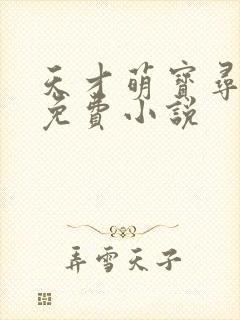 天才萌寶尋
免費小説
弄雪天子